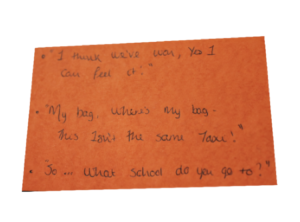 • "I think we've won, Yes I
can feel it."
• "My bag. Where's my bag.
This isn't the same Tour!"
• "So ... What school do you go to?"